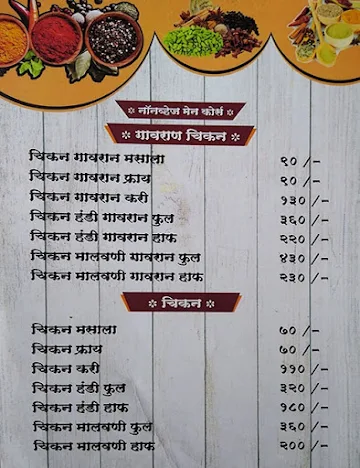 नॉनव्हेज मेन कोर्स
गावराण चिकन
चिकन गावरान मसाला ९० /-
चिकन गावरान फ्राय ९० /-
चिकन गावरान करी १३० /-
चिकन हंडी गावरान फुल ३६० /-
चिकन हंडी गावरान हाफ २२० /-
चिकन मालवणी गावरान फुल ४३० /-
चिकन मालवणी गावरान हाफ २३० /-
चिकन
चिकन मसाला ७० /-
चिकन फ्राय ७० /-
चिकन करी ११० /-
चिकन हंडी फुल ३२० /-
चिकन हंडी हाफ १८० /-
चिकन मालवणी फुल ३६० /-
चिकन मालवणी हाफ २०० /-